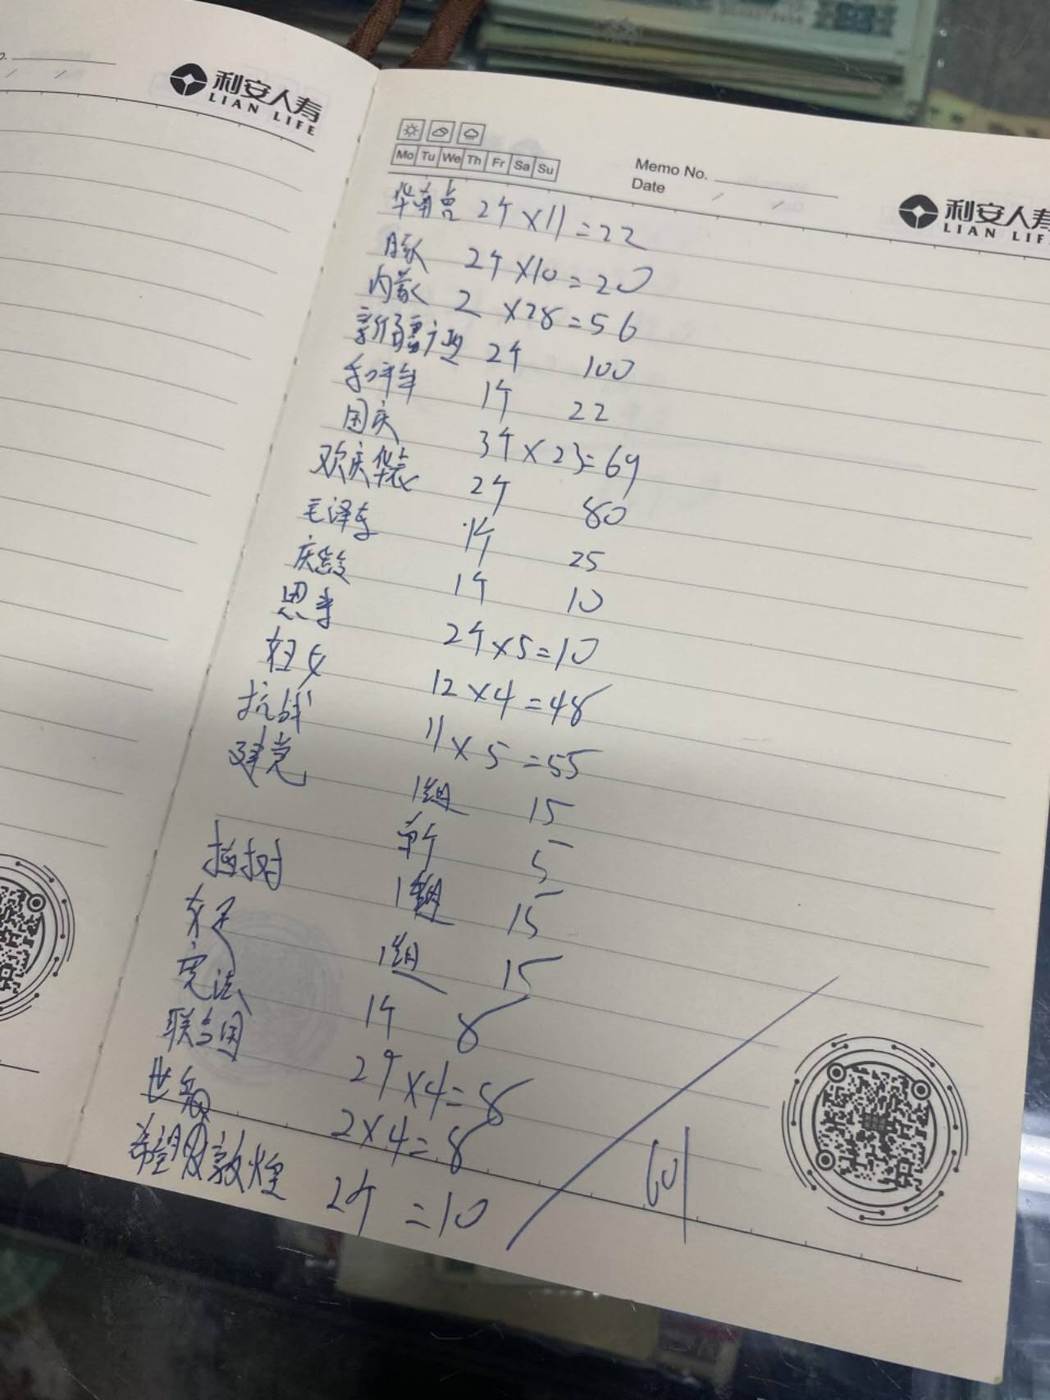 利安人寿
LIAN LIFE
Mo Tu We Th Fr Sa Su
Memo No.
Date / /
利安人寿
LIAN LIF
华南 2个×11=22
豚 2个×10=20
内蒙 2 ×28=56
新疆 2个 100
和平年 1个 22
国庆 3个×23=69
欢庆装 2个 80
毛泽东 1个 25
庆龄 1个 10
恩来 2个×5=10
妇女 12×4=48
抗战 11×5=55
建党 1组 15
单个 5
植树 1组 15
女足 1组 15
宪法 1个 8
联合国 2个×4=8
世妇 2×4=8
希望及敦煌 2个 =10
601